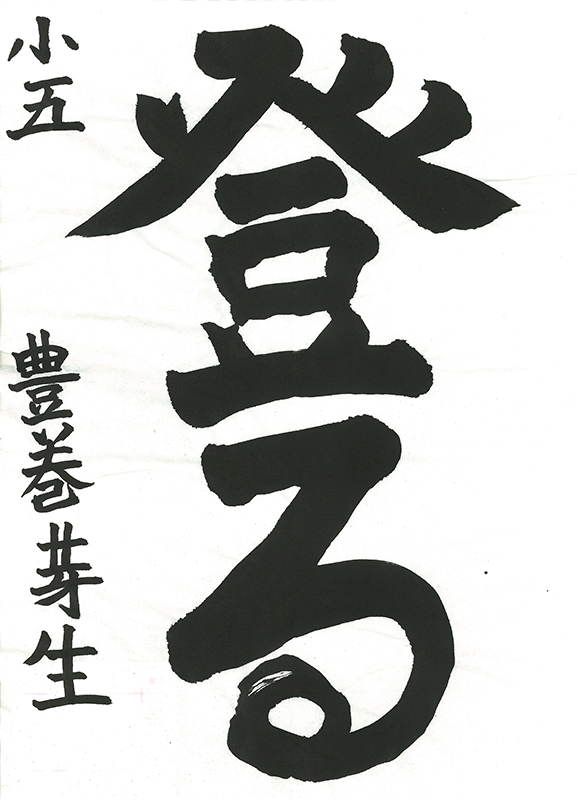 登る
小五 豊巻芽生